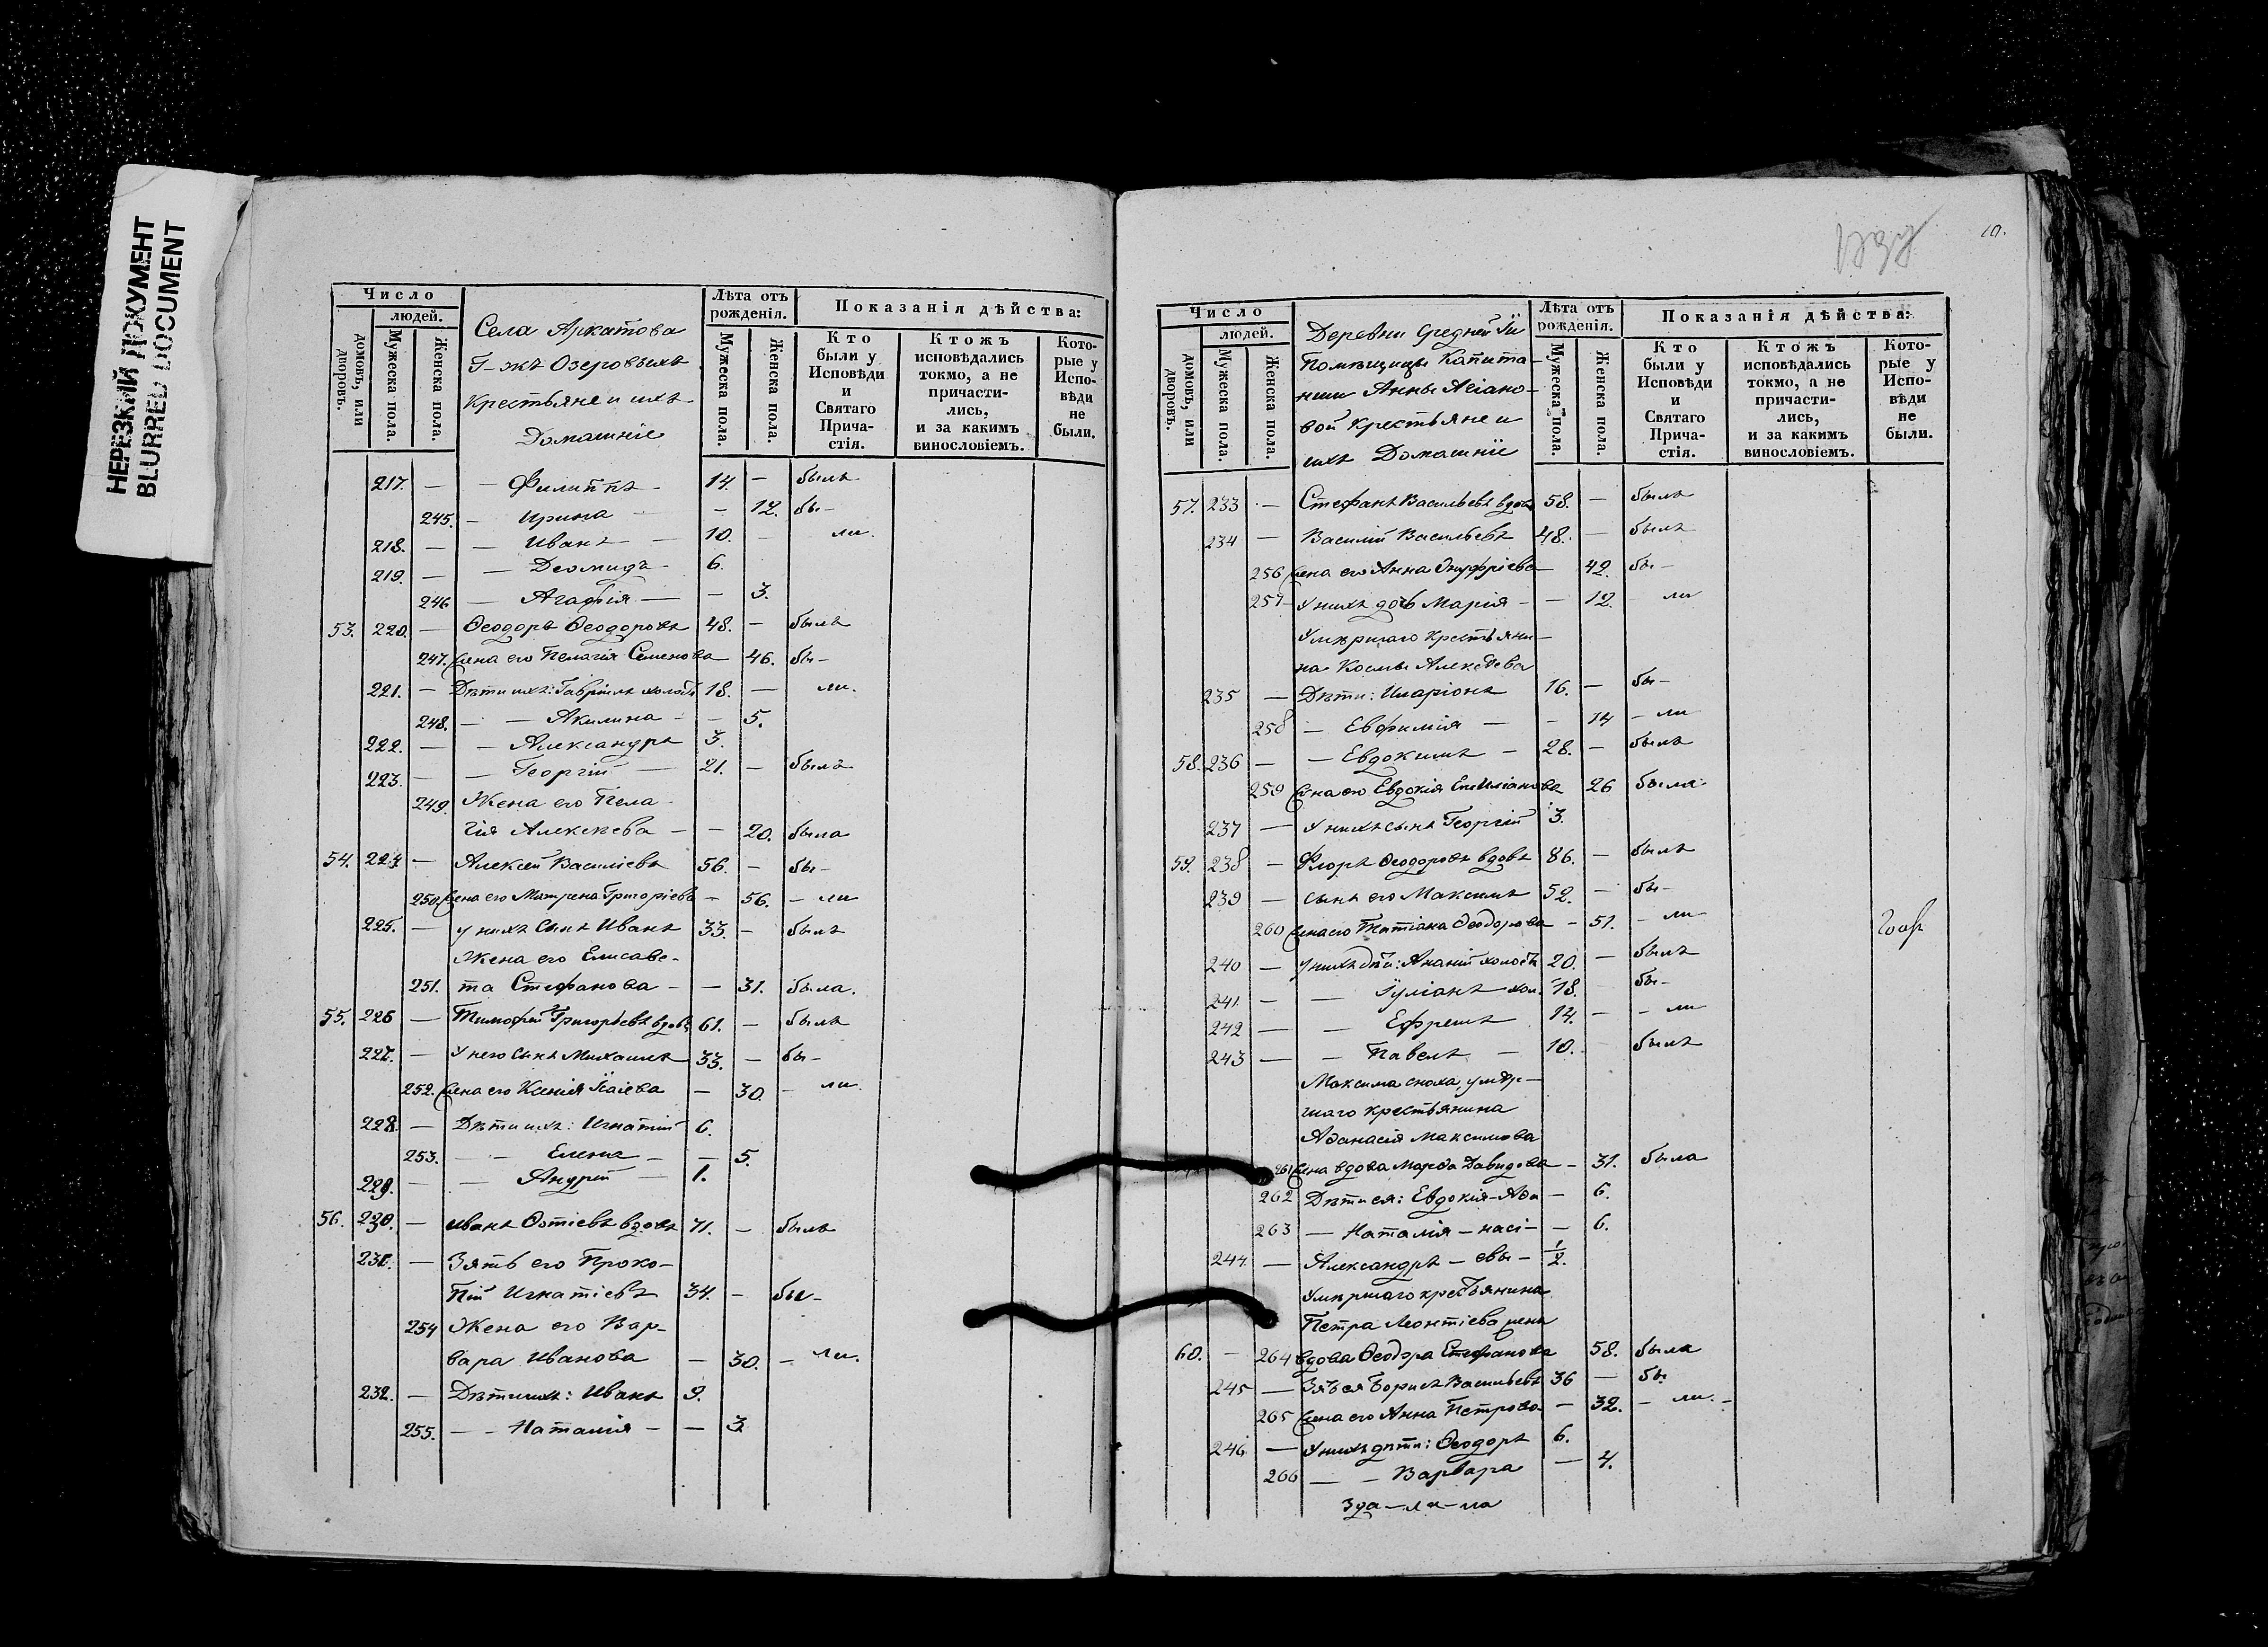 НЕРЕЗКИЙ ДОКУМЕНТ
BLURRED DOCUMENT
Число
людей.
домовъ, или дворовъ.
Мужеска пола.
Женска пола.
Села Аркатова
Г-жъ Озеровыхъ
крестьяне и ихъ
Домашніе
Лѣта отъ рожденія.
Мужеска пола.
Женска пола.
Показанія дѣйства:
Кто были у Исповѣди и Святаго Прича- стія.
Ктожъ исповѣдались токмо, а не причасти- лись, и за какимъ винословіемъ.
Кото- рые у Испо- вѣди не были.
217. — — Филиппъ — 14. — былъ
245. — Ирина — — 12. бы—
218. — — Иванъ — — 10. — ли.
219. — — Деомидъ — 6.
246 — Агафія — — 3.
53. 220. — Ѳеодоръ Ѳеодоровъ 48. — былъ
247. Жена его Пелагія Семенова 46. бы—
221. — Дѣти ихъ: Гавріилъ холостъ 18. — ли.
248. — — Акилина — — 5.
222. — — Александръ 3.
223. — — Георгій — 21. — былъ
249. Жена его Пела—
гія Алексѣева — — 20. была
54. 224. — Алексѣй Василіевъ 56. — бы—
250. Жена его Матрена Григоріева — 56. — ли
225. — у нихъ сынъ Иванъ 33. — былъ
Жена его Елисаве-
251. та Стефанова — — 31. была.
55. 226 — Тимофей Григорьевъ вдовъ 61. — былъ
227. — У него сынъ Михаилъ 33. — бы—
252. Жена его Ксенія — 30. — ли.
228. — Дѣти ихъ: Игнатій 6.
253. — — Елена — — 5.
229. — — Андрей — 1.
56. 230. — Иванъ Ѳотіевъ вдовъ 71. — былъ
231. — Зять его Проко—
пій Игнатіевъ 34. — бы—
254 Жена его Вар—
вара Иванова — 30. — ли.
232. — Дѣти ихъ: Иванъ 9.
255. — — Наталія — — 3
10.
Число
людей.
домовъ, или дворовъ.
Мужеска пола.
Женска пола.
Деревни Средней
Помѣщицы Капита—
нши Анны —
вой крестьяне и
ихъ Домашніи
Лѣта отъ рожденія.
Мужеска пола.
Женска пола.
Показанія дѣйства:
Кто были у Исповѣди и Святаго Прича- стія.
Ктожъ исповѣдались токмо, а не причасти- лись, и за какимъ винословіемъ.
Кото- рые у Испо- вѣди не были.
57. 233 — Стефанъ Васильевъ вдовъ 58. — былъ
234 — Василій Васильевъ 48. — былъ
256 Жена его Анна Онуфріева 42. бы—
257 — У нихъ дочь Марія — — 12. ли
Умѣршаго крестьяни—
на Космы Алексѣева
235 — Дѣти: Иларіонъ 16. — бы—
258 — Евфимія — — 14 — ли
58. 236 — — Евдокимъ — 28. — былъ
259 Жена его Евдокія Емиліанова 26 была
237 — У нихъ сынъ Георгій 3.
59. 238 — Флоръ Ѳеодоровъ вдовъ 86. — былъ
239 — сынъ его Максимъ 52. — бы—
260 Жена его Татіана Ѳеодорова — 51. — ли
240 — у нихъ дѣти: Ананій холостъ 20. — былъ
241 — — Іуліанъ хол. 18. бы—
242 — — Ефремъ 14. — — ли
243 — — Павелъ — 10. былъ
Максима сноха, умѣр—
шаго крестьянина
Аѳанасія Максимова
261 Жена вдова Марѳа Давидова — 31. была
262 Дѣти ея: Евдокія — Аѳа — 6.
263 — Наталія — насі — — 6.
244 — Александръ — евы — 1/2.
Умѣршаго крестьянина
Петра Леонтіева жена
60. — 264 вдова Ѳеодора Стефанова 58. была
245 — Зять ея Борисъ Васильевъ 36 — бы
265 Жена его Анна Петрова — 32. — ли. —
246 — У нихъ дѣти: Ѳеодоръ 6.
266 — — Варвара — 4.